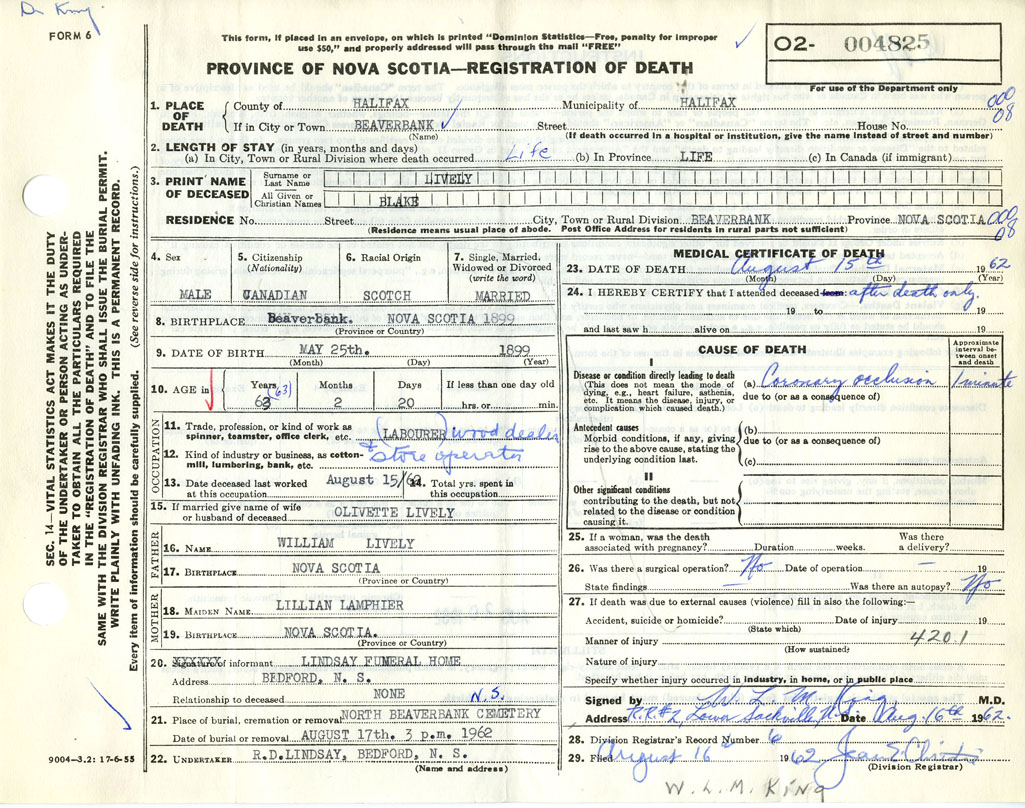 Dr King
FORM 6
This form, if placed in an envelope, on which is printed "Dominion Statistics—Free, penalty for improper
use $50," and properly addressed will pass through the mail "FREE"
PROVINCE OF NOVA SCOTIA—REGISTRATION OF DEATH
O2- 004825
For use of the Department only
1. PLACE OF DEATH
County of HALIFAX Municipality of HALIFAX
000
08
If in City or Town BEAVERBANK Street House No.
(Name) (If death occurred in a hospital or institution, give the name instead of street and number)
2. LENGTH OF STAY (in years, months and days)
(a) In City, Town or Rural Division where death occurred Life (b) In Province LIFE (c) In Canada (if immigrant)
3. PRINT NAME OF DECEASED
Surname or Last Name LIVELY
All Given or Christian Names BLAKE
RESIDENCE No. Street City, Town or Rural Division BEAVERBANK Province NOVA SCOTIA 000
08
(Residence means usual place of abode. Post Office Address for residents in rural parts not sufficient)
4. Sex
MALE
5. Citizenship
(Nationality)
CANADIAN
6. Racial Origin
SCOTCH
7. Single, Married,
Widowed or Divorced
(write the word)
MARRIED
8. BIRTHPLACE Beaverbank. NOVA SCOTIA 1899
(Province or Country)
9. DATE OF BIRTH MAY 25th. 1899
(Month) (Day) (Year)
10. AGE in
Years Months Days If less than one day old
(63)
63 2 20 hrs. or min.
OCCUPATION
11. Trade, profession, or kind of work as
spinner, teamster, office clerk, etc. (LABOURER) wood dealer
12. Kind of industry or business, as cotton-
mill, lumbering, bank, etc. & store operator
13. Date deceased last worked
at this occupation August 15/62
14. Total yrs. spent in
this occupation
15. If married give name of wife
or husband of deceased OLIVETTE LIVELY
FATHER
16. NAME WILLIAM LIVELY
17. BIRTHPLACE NOVA SCOTIA
(Province or Country)
MOTHER
18. MAIDEN NAME LILLIAN LAMPHIER
19. BIRTHPLACE NOVA SCOTIA.
(Province or Country)
20. Signature of informant LINDSAY FUNERAL HOME
Address BEDFORD, N. S.
Relationship to deceased NONE N.S.
21. Place of burial, cremation or removal NORTH BEAVERBANK CEMETERY
Date of burial or removal AUGUST 17th. 3 p.m. 1962
22. UNDERTAKER R.D.LINDSAY, BEDFORD, N. S.
(Name and address)
MEDICAL CERTIFICATE OF DEATH
23. DATE OF DEATH August 15th 1962
(Month) (Day) (Year)
24. I HEREBY CERTIFY that I attended deceased from: after death only.
19 to 19
and last saw h alive on 19
CAUSE OF DEATH
Approximate
interval be-
tween onset
and death
I
Disease or condition directly leading to death
(This does not mean the mode of
dying, e.g., heart failure, asthenia,
etc. It means the disease, injury, or
complication which caused death.)
(a) Coronary occlusion 1 minute
due to (or as a consequence of)
Antecedent causes
Morbid conditions, if any, giving
rise to the above cause, stating the
underlying condition last.
(b)
due to (or as a consequence of)
(c)
II
Other significant conditions
contributing to the death, but not
related to the disease or condition
causing it.
25. If a woman, was the death
associated with pregnancy? Duration weeks.
Was there
a delivery?
26. Was there a surgical operation? No Date of operation —
State findings — Was there an autopsy? No
27. If death was due to external causes (violence) fill in also the following:—
Accident, suicide or homicide? Date of injury 19
(State which)
Manner of injury 420.1
(How sustained)
Nature of injury
Specify whether injury occurred in industry, in home, or in public place
Signed by W. L. M. King M.D.
Address R.R.#2, Lower Sackville N.S. Date Aug. 16th 1962.
28. Division Registrar's Record Number 6
29. Filed August 16 1962
(Division Registrar)
W. L. M. KING
SEC. 14—VITAL STATISTICS ACT MAKES IT THE DUTY
OF THE UNDERTAKER OR PERSON ACTING AS UNDER-
TAKER TO OBTAIN ALL THE PARTICULARS REQUIRED
IN THE "REGISTRATION OF DEATH" AND TO FILE THE
SAME WITH THE DIVISION REGISTRAR WHO SHALL ISSUE THE BURIAL PERMIT.
WRITE PLAINLY WITH UNFADING INK. THIS IS A PERMANENT RECORD.
Every item of information should be carefully supplied. (See reverse side for instructions.)
9004—3.2: 17-6-55